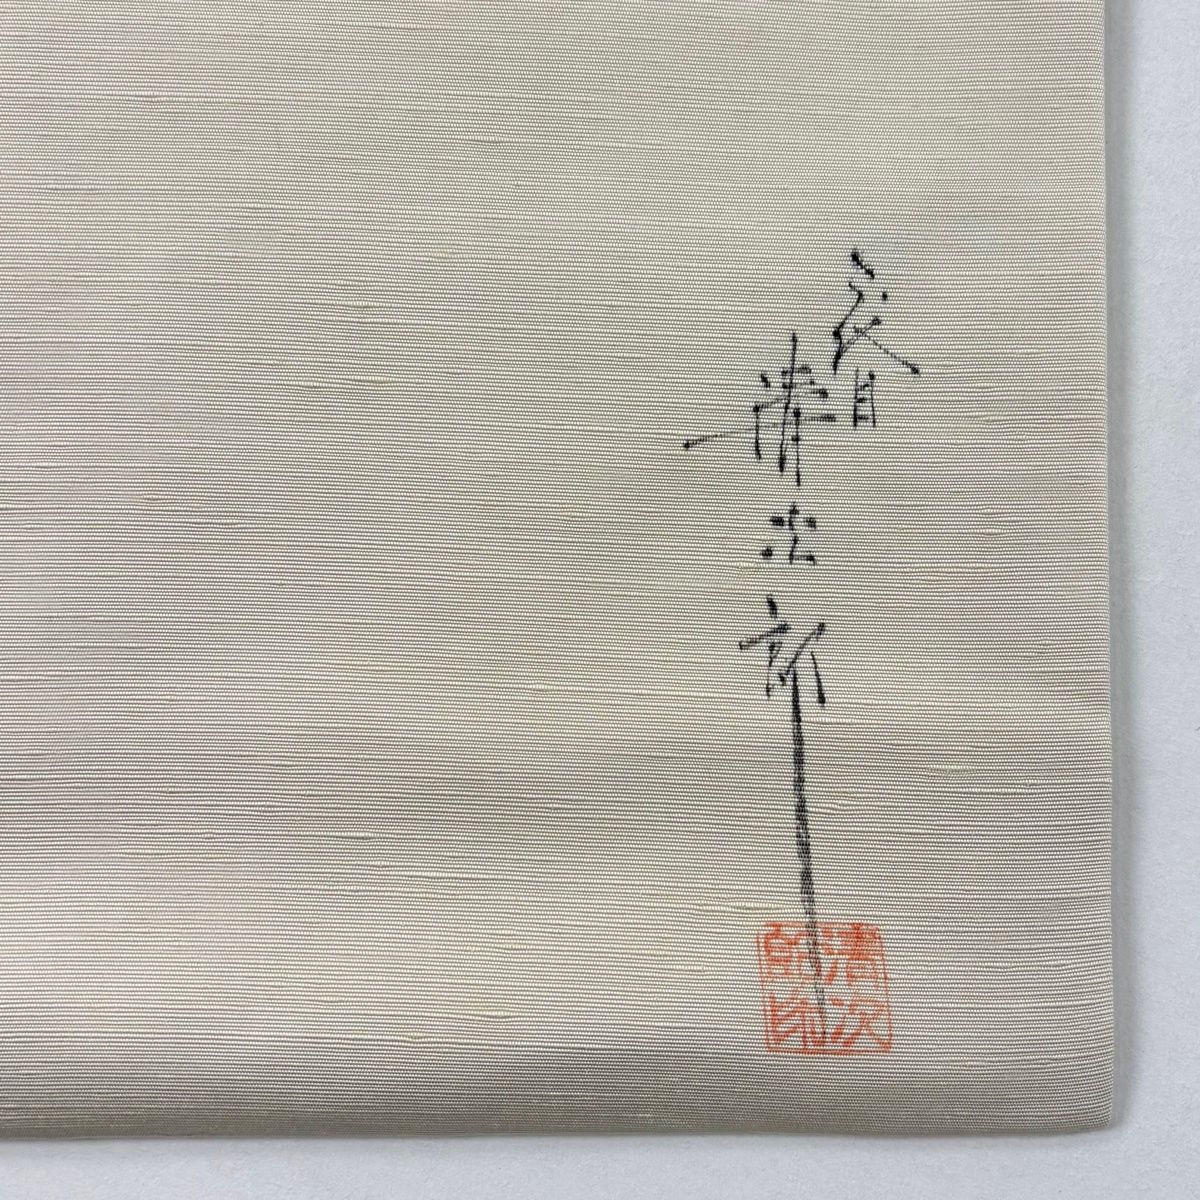 目
清次郎
清次
郎印